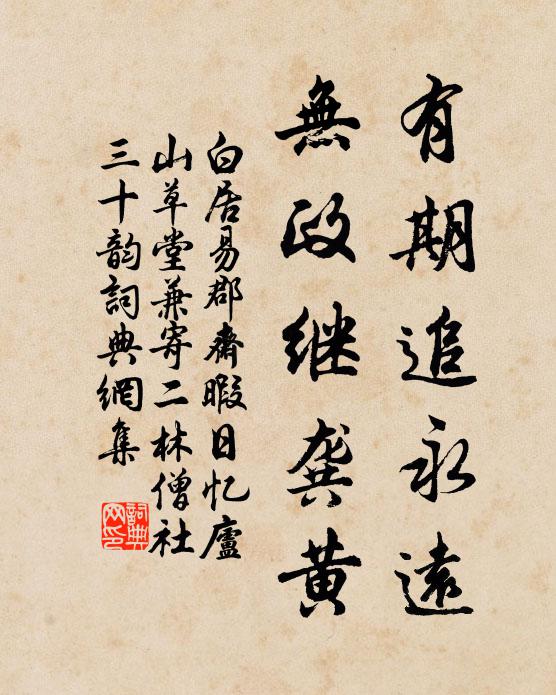 有期追永遠
無政继龔黄
白居易郡齋暇日忆廬
山草堂兼寄二林僧社
三十韵詞典網集
詞典
网印